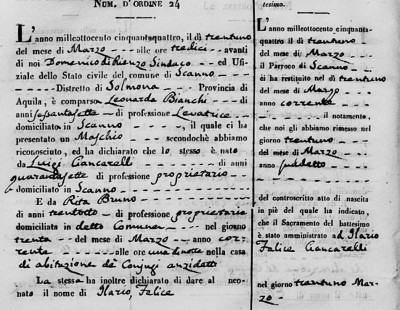 NUM. D'ORDINE 24
L'anno milleottocento cinquantaquattro, il dì trentuno
del mese di Marzo alle ore tredici avanti
di noi Domenico di Rienzo Sindaco ed Ufi-
ziale dello Stato civile del comune di Scanno
Distretto di Solmona Provincia di
Aquila, è comparsa Leonarda Bianchi di
anni sessantasette di professione Levatrice
domiciliata in Scanno, il quale ci ha
presentato un Maschio secondochè abbiamo
riconosciuto, ed ha dichiarato che lo stesso è nato
da Luigi Ciancarelli di anni
quarantasette di professione proprietario
domiciliato in Scanno
E da Rita Bruno
di anni trentotto di professione proprietaria
domiciliata in detto Comune nel giorno
trenta del mese di Marzo anno cor-
rente alle ore una di notte nella casa
di abitazione de' Conjugi anzidetti
La stessa ha inoltre dichiarato di dare al neo-
nato il nome di Ilario, Felice
tesimo.
L'anno milleottocento cinquanta-
quattro il dì trentuno
del mese di Marzo
il Parroco di Scanno
ci ha restituito nel dì trentuno
del mese di Marzo
anno corrente
il notamento,
che noi gli abbiamo rimesso nel
giorno trentuno
del mese di Marzo
anno suddetto
del controscritto atto di nascita
in piè del quale ha indicato,
che il Sacramento del battesimo
è stato amministrato a Ilario
Felice Ciancarelli
nel giorno trentuno Mar-
zo